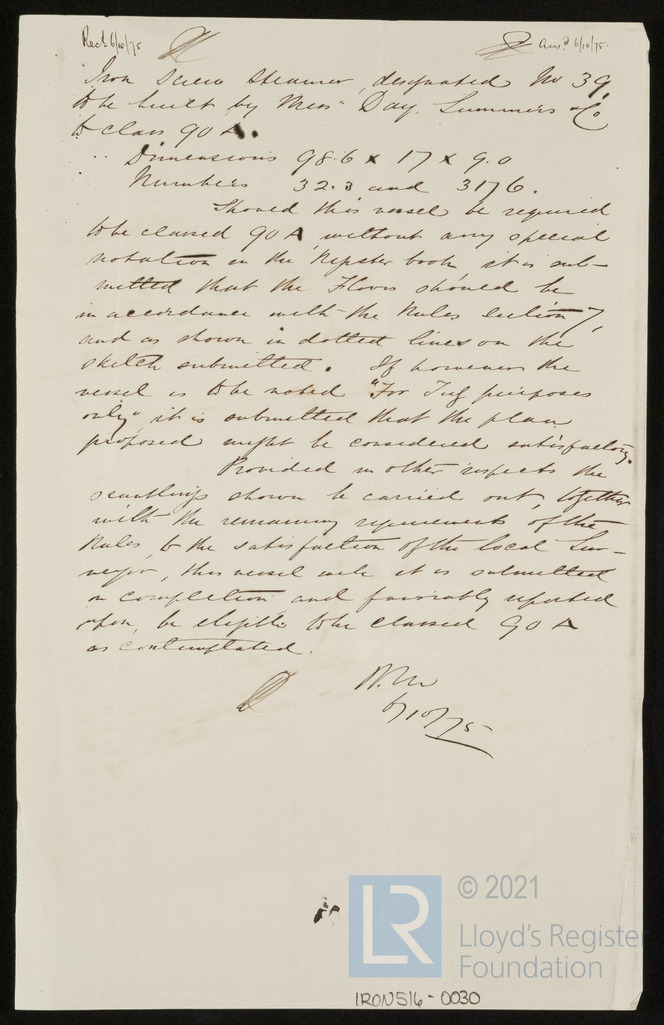 Recd 6/10/75 Ansd 6/10/75.
Iron Screw Steamer, designated No 39,
to be built by Messrs Day, Summers & Co
to class 90 A.
Dimensions 98.6 x 17 x 9.0
Numbers 32.3 and 3176.
Should this vessel be required
to be classed 90 A, without any special
notation in the Register book, it is sub-
mitted that the Floors should be
in accordance with the Rules Section 7,
and as shown in dotted lines on the
sketch submitted. If however the
vessel is to be noted "For Tug purposes
only", it is submitted that the plan
proposed might be considered satisfactory.
Provided in other respects the
scantlings shown be carried out, together
with the remaining requirements of the
Rules, to the satisfaction of the local Sur-
veyor, this vessel will it is submitted
on completion and favorably reported
upon, be eligible to be classed 90 A
as contemplated.
6/10/75
© 2021
LR
Lloyd's Register
Foundation
IRON516-0030